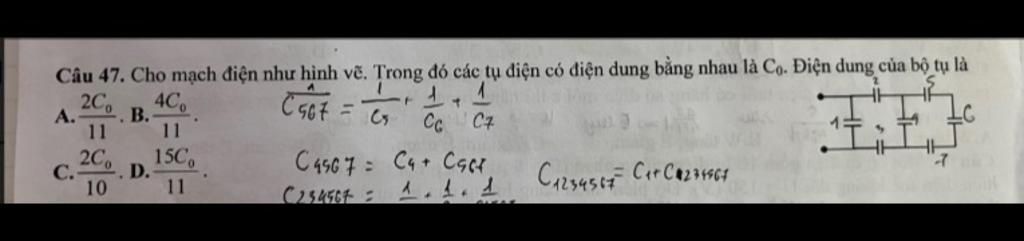 Câu 47. Cho mạch điện như hình vẽ. Trong đó các tụ điện có điện dung bằng nhau là C₀. Điện dung của bộ tụ là
A. 2C₀/11 . B. 4C₀/11 .
C. 2C₀/10 . D. 15C₀/11 .
1/C567 = 1/C5 + 1/C6 + 1/C7
C4567 = C4 + C567
C234567 = 1 . 1 . 1
C1234567 = C1 + C234567
2 5
1 4 6
3 7